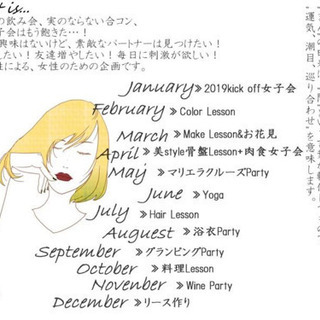 is...
の飲み会、実のならない合コン、
子会はもう飽きた…！
興味はないけど、素敵なパートナーは見つけたい！
たい！友達増やしたい！毎日に刺激が欲しい！
性による、女性のための企画です。
January》2019kick off女子会
February》Color Lesson
March》Make Lesson&お花見
April》美style骨盤Lesson+肉食女子会
Maj》マリエラクルーズParty
June》Yoga
July》Hair Lesson
Auguest》浴衣Party
September》グランピングParty
October》料理Lesson
Novenber》Wine Party
December》リース作り
運気、潮目、巡り合わせ"を意味します。